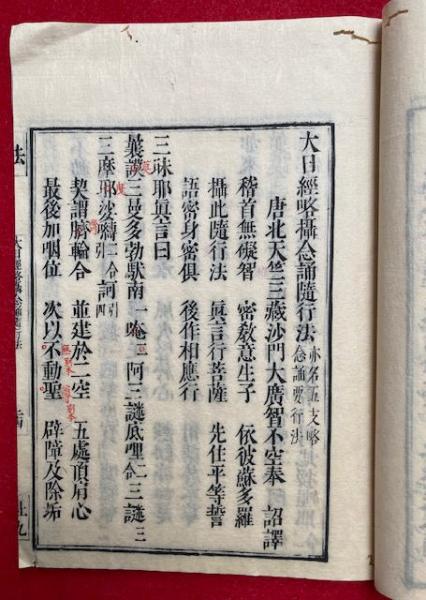 大日經略攝念誦隨行法 亦名五支略念誦要行法
唐北天竺三藏沙門大廣智不空奉 詔譯
稽首無礙智 密教意生子 依彼蘇多羅
攝此隨行法 眞言行菩薩 先住平等誓
語密身密俱 後作相應行
三昧耶眞言曰
曩謨三曼多勃馱南一唵二阿三謎底哩二合三謎三
三摩耶娑嚩二合引訶引四
契謂臍輪合 並建於二空 五處頂肩心
最後加咽位 次以不動聖 辟障及除垢
法
大日經略攝念誦隨行法